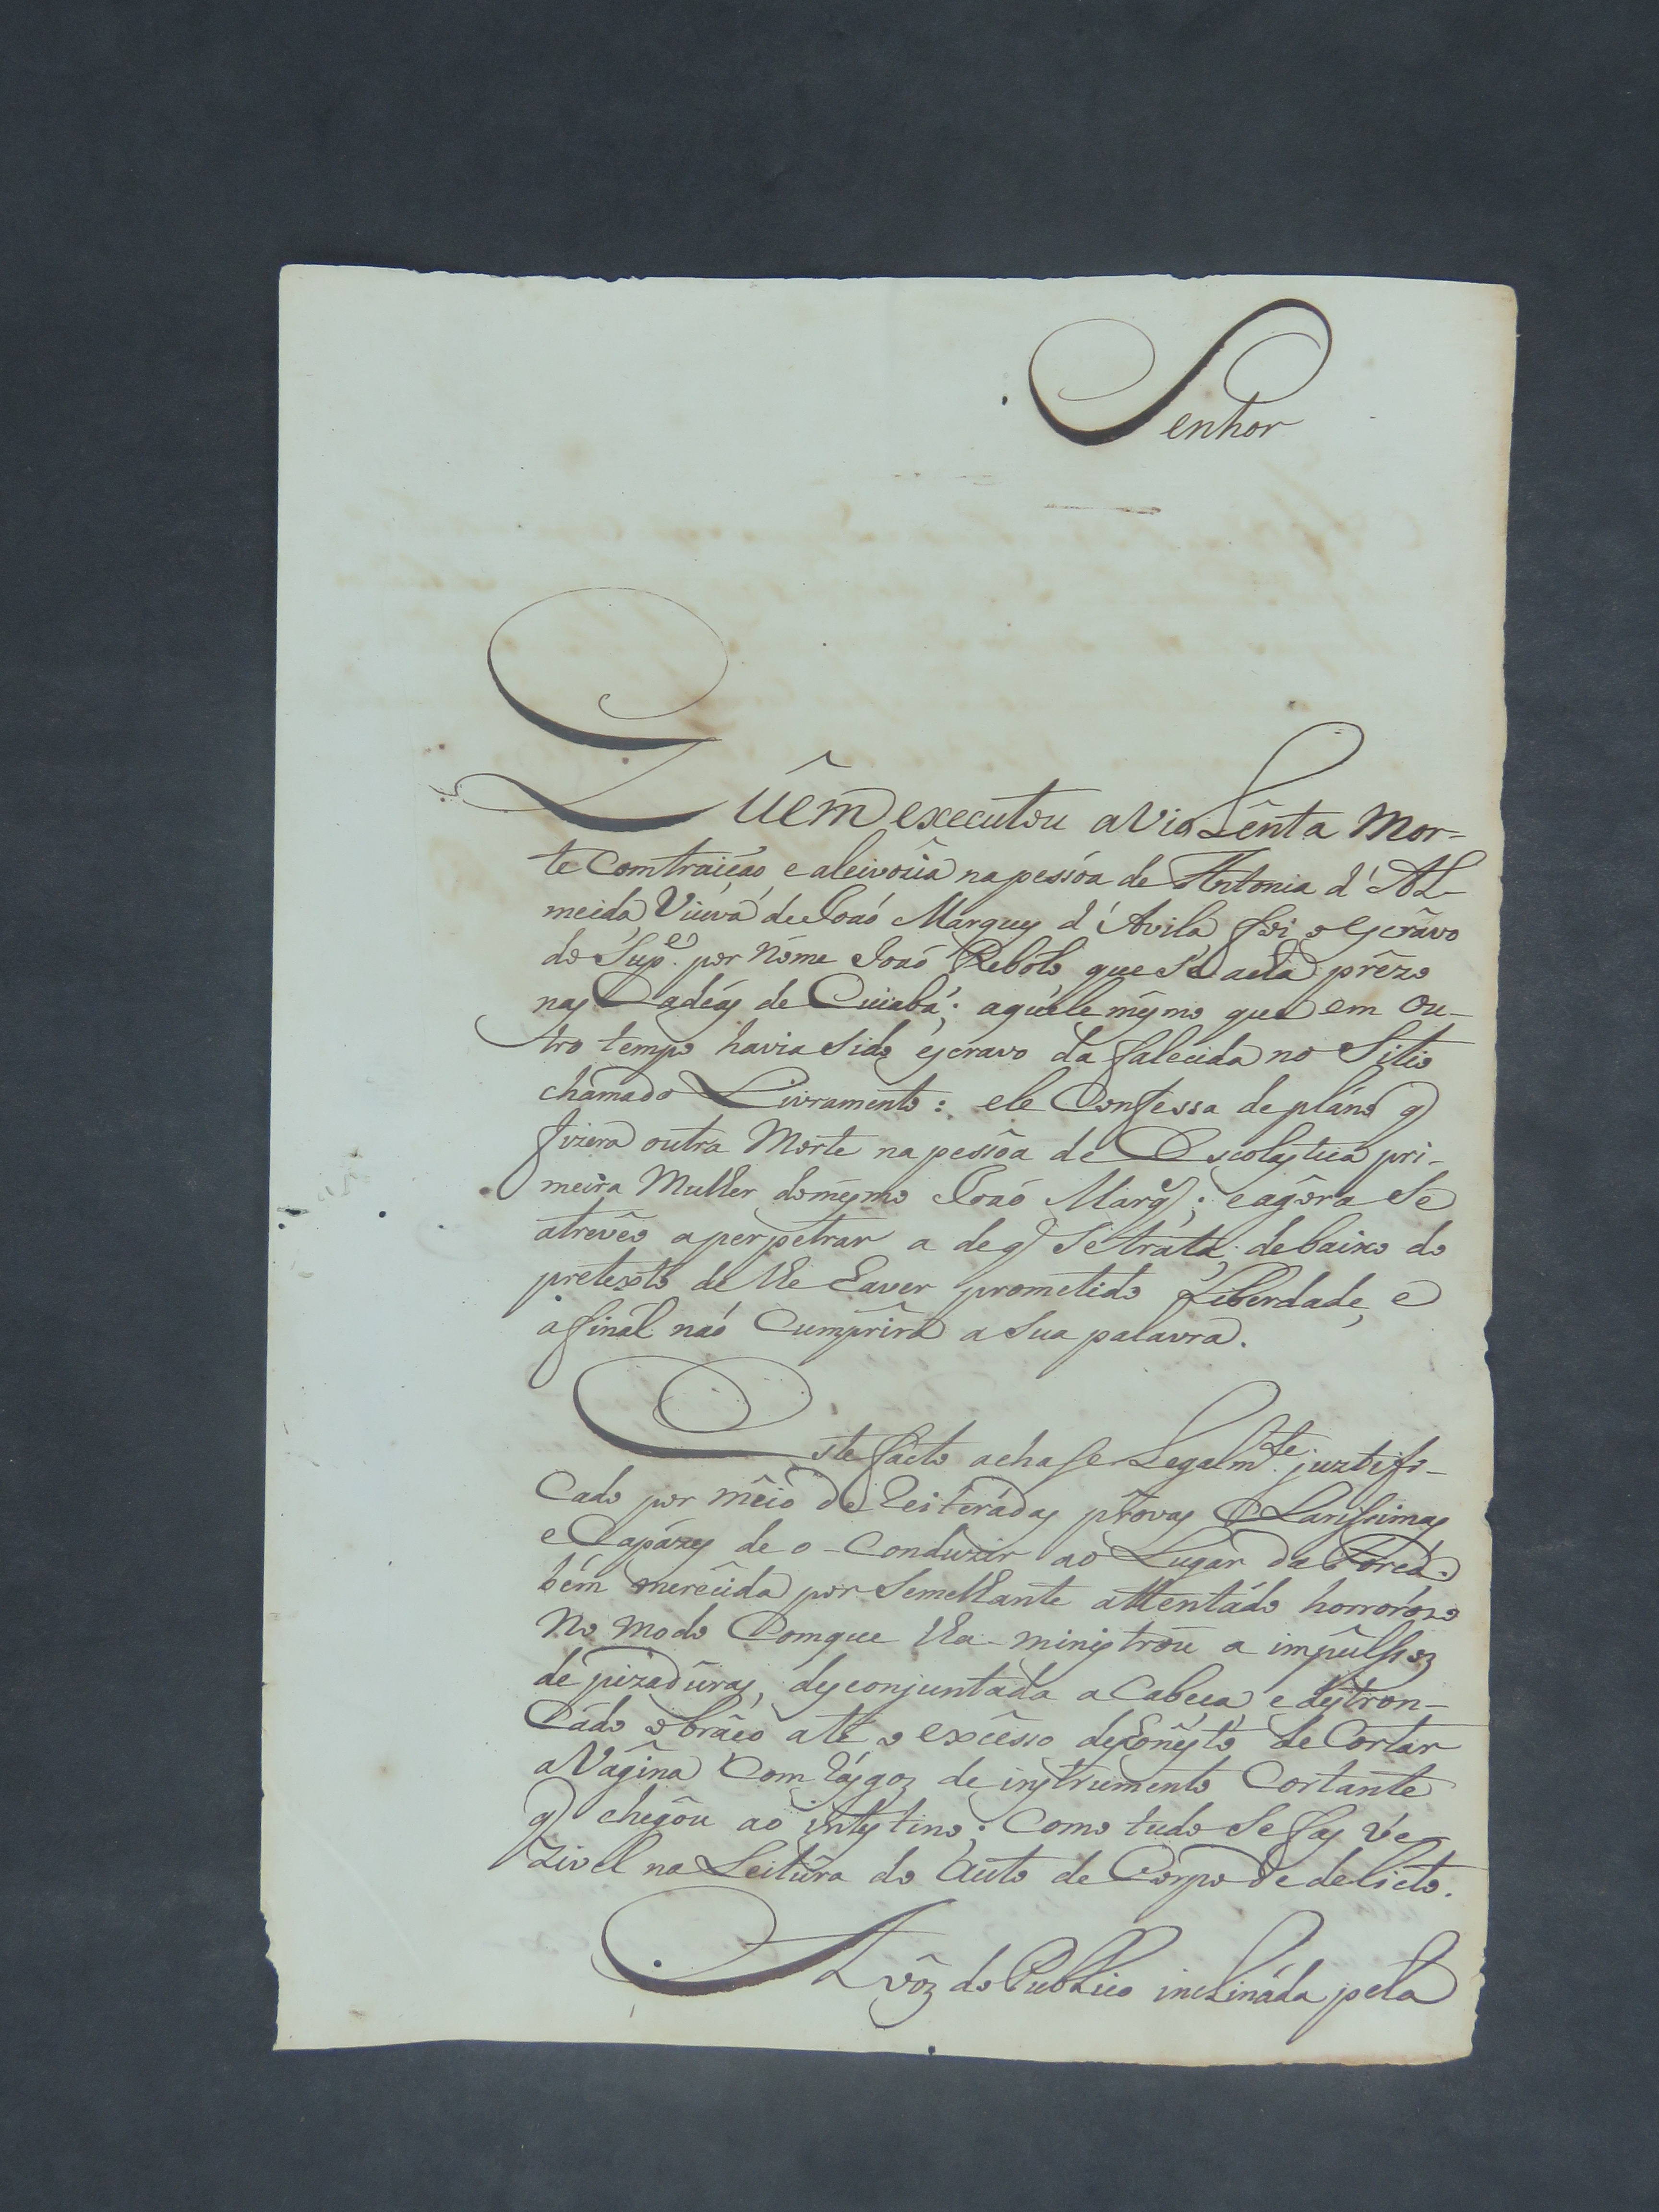 Senhor
Quêm executou a VioLênta Mor-
te Comtraição e aleivozia na pessóa de Antonia d'AL-
meida, Viuva de Joaó Marques d'Avila, foi o escrâvo
do Sup.e por Nóme Joaó Rebôlo que Se acha prêzo
nas Cadêas de Cuiabá; aquéle mêsmo que em ou-
tro tempo havia sido escravo da falecida no Sitio
chamado Livramento: ele Confessa de pláno q
fizera outra Morte na pessôa de Escolastica pri-
meira Mulher do mesmo Joaó Marq.s; e agóra Se
atrevêo a perpetrar a de q Se tráta, debaixo do
pretexto de lhe haver prometido Liberdade, e
afinal naó Cumprira a Sua palavra.
Este facto achase Legalm.te juztifi-
Cado por mêio de reiterádas próvas Clarissimas
e Capázes de o Conduzir ao Lugar da Forca
bém merêcida por Semelhante attentádo horrorózo
No modo Comque lha ministrou a impûlsoz
de pizadûras, desconjuntada a Cabeça, e destron-
Cádo o brâço até o excésso deshonésto de Cortar
a Vagina Com rásgoz de instrumento Cortante
q chegôu ao intestino; Como tudo Se fas Ve-
zivel na Leitûra do Auto de Corpo de delicto.
A vôz do PubLico incLináda pela